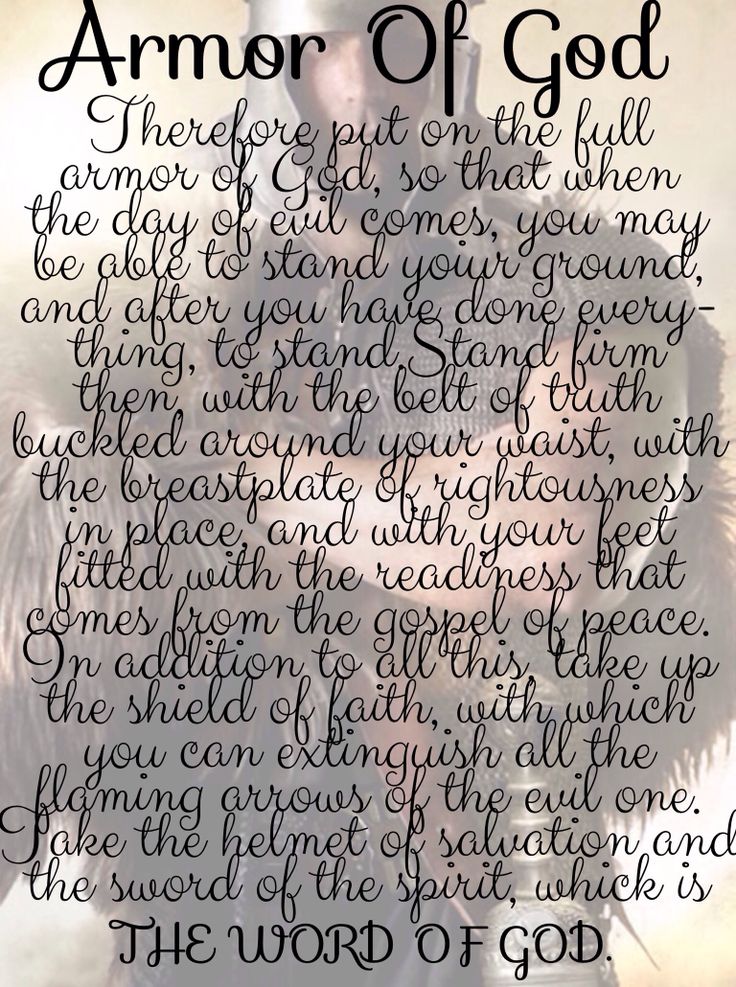 Armor Of God
Therefore put on the full
armor of God, so that when
the day of evil comes, you may
be able to stand yoiur ground,
and after you have done every-
thing, to stand.Stand firm
then, with the belt of truth
buckled around your waist, with
the breastplate of rightousness
in place, and with your feet
fitted with the readiness that
comes from the gospel of peace.
In addition to all this, take up
the shield of faith, with which
you can extinguish all the
flaming arrows of the evil one.
Take the helmet of salvation and
the sword of the spirit, whick is
THE WORD OF GOD.